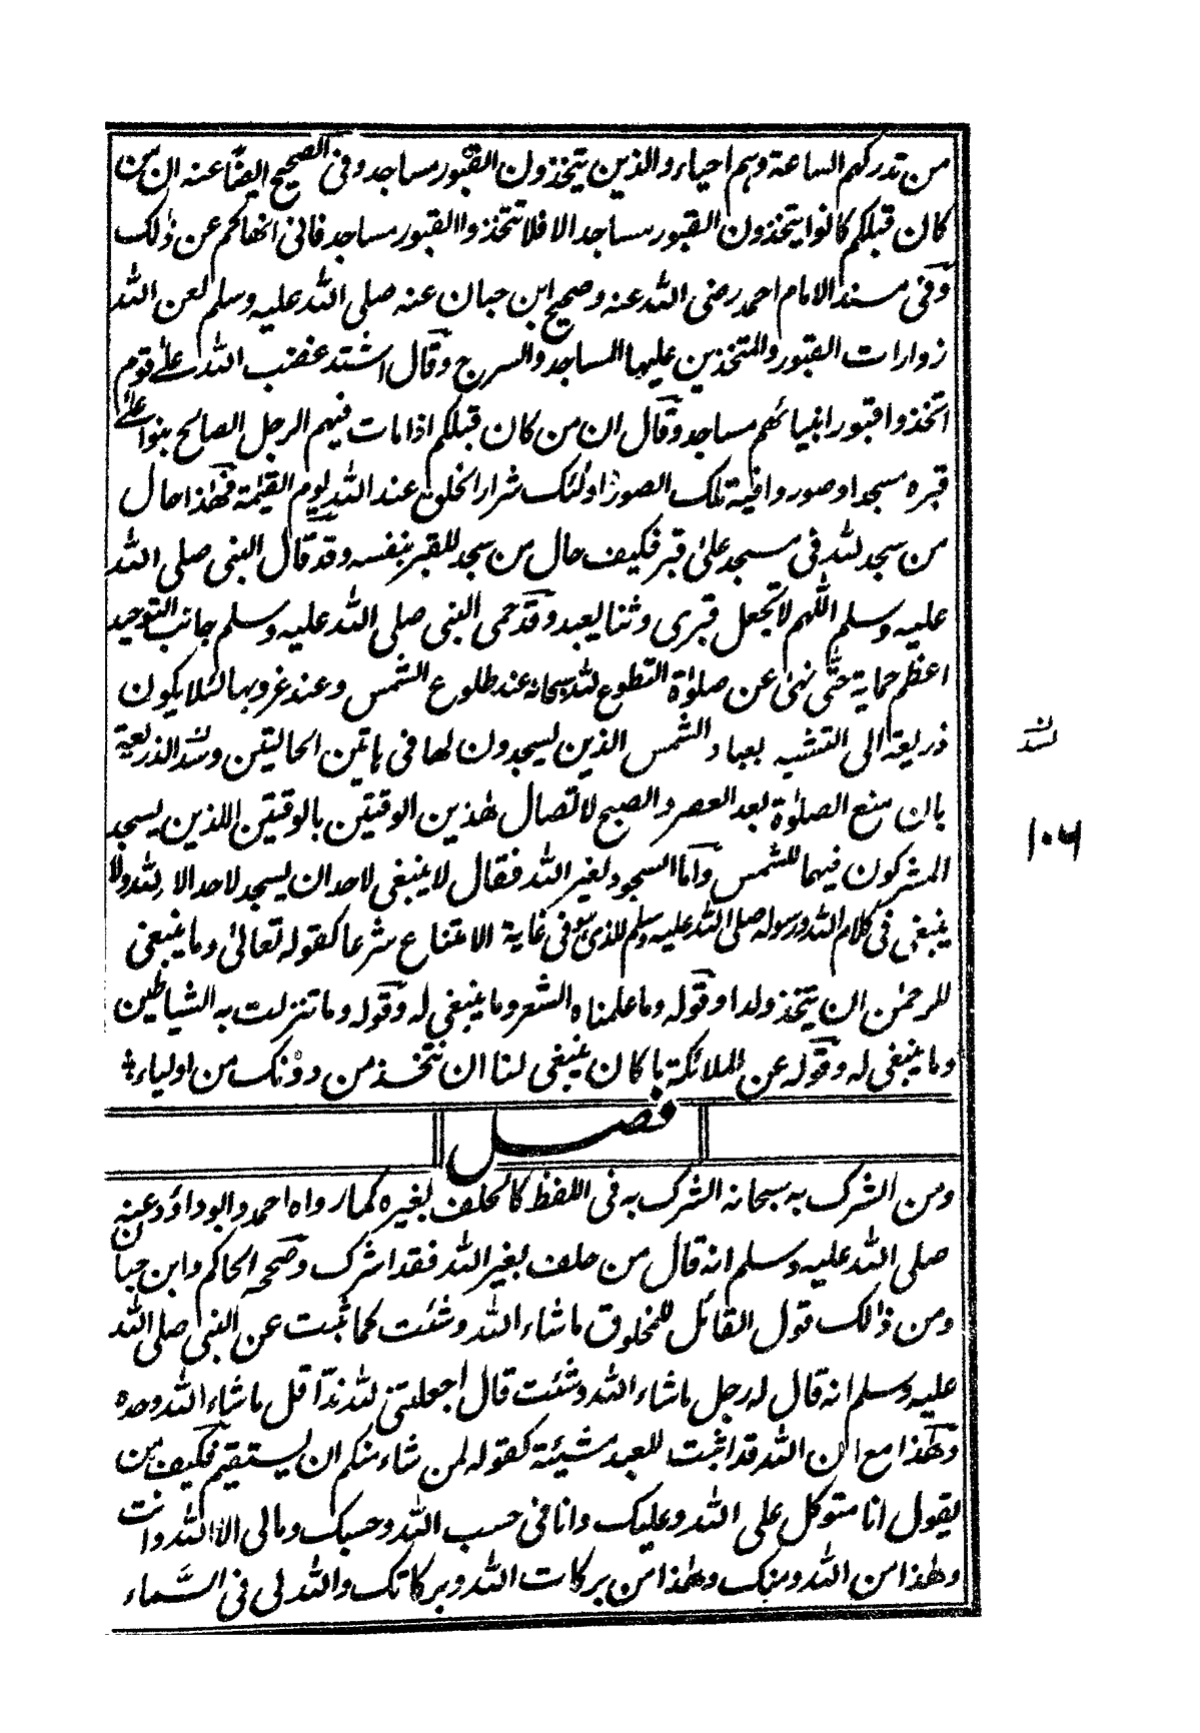 من تدركهم الساعة وهم احياء والذين يتخذون القبور مساجد وفى الصحيح ايضًا عنه ان من
كان قبلكم كانوا يتخذون القبور مساجد الا فلا تتخذوا القبور مساجد فانى انهاكم عن ذلك
وفى مسند الامام احمد رضى الله عنه وصحيح ابن حبان عنه صلى الله عليه وسلم لعن الله
زوارات القبور والمتخذين عليها المساجد والسرج وقال اشتد غضب الله على قوم
اتخذوا قبور انبيائهم مساجد وقال ان من كان قبلكم اذا مات فيهم الرجل الصالح بنوا على
قبره مسجدا وصوروا فيه تلك الصور اولئك شرار الخلق عند الله يوم القيمة فهذا حال
من سجد لله فى مسجد على قبر فكيف حال من سجد للقبر بنفسه وقد قال النبى صلى الله
عليه وسلم اللهم لا تجعل قبرى وثنا يعبد وقد حمى النبى صلى الله عليه وسلم جانب التوحيد
اعظم حماية حتى نهى عن صلوة التطوع لله سبحانه عند طلوع الشمس وعند غروبها لئلا يكون
ذريعة الى التشبه بعباد الشمس الذين يسجدون لها فى هاتين الحالتين وسد الذريعة
بان منع الصلوة بعد العصر والصبح لاتصال هذين الوقتين بالوقتين اللذين يسجد
المشركون فيهما للشمس واما السجود لغير الله فقال لا ينبغى لاحد ان يسجد لاحد الا لله ولا
ينبغى فى كلام الله ورسوله صلى الله عليه وسلم للذى هو فى غاية الامتناع شرعا كقوله تعالى وما ينبغى
للرحمن ان يتخذ ولدا وقوله وما علمناه الشعر وما ينبغى له وقوله وما تنزلت به الشياطين
وما ينبغى له وقوله عن الملائكة ما كان ينبغى لنا ان نتخذ من دونك من اولياء
فصل
ومن الشرك به سبحانه الشرك به فى اللفظ كالحلف بغيره كما رواه احمد وابو داؤد عنه
صلى الله عليه وسلم انه قال من حلف بغير الله فقد اشرك وصححه الحاكم وابن حبان
ومن ذالك قول القائل للمخلوق ما شاء الله وشئت كما ثبت عن النبى صلى الله
عليه وسلم انه قال له رجل ما شاء الله وشئت قال اجعلتنى لله ندّا قل ما شاء الله وحده
وهذا مع ان الله قد اثبت للعبد مشيئة كقوله لمن شاء منكم ان يستقيم فكيف من
يقول انا متوكل على الله وعليك وانا فى حسب الله وحسبك ومالى الا الله وانت
وهذا من الله ومنك وهذا من بركات الله وبركاتك والله لى فى السَّماء
لسد
۱۰۶